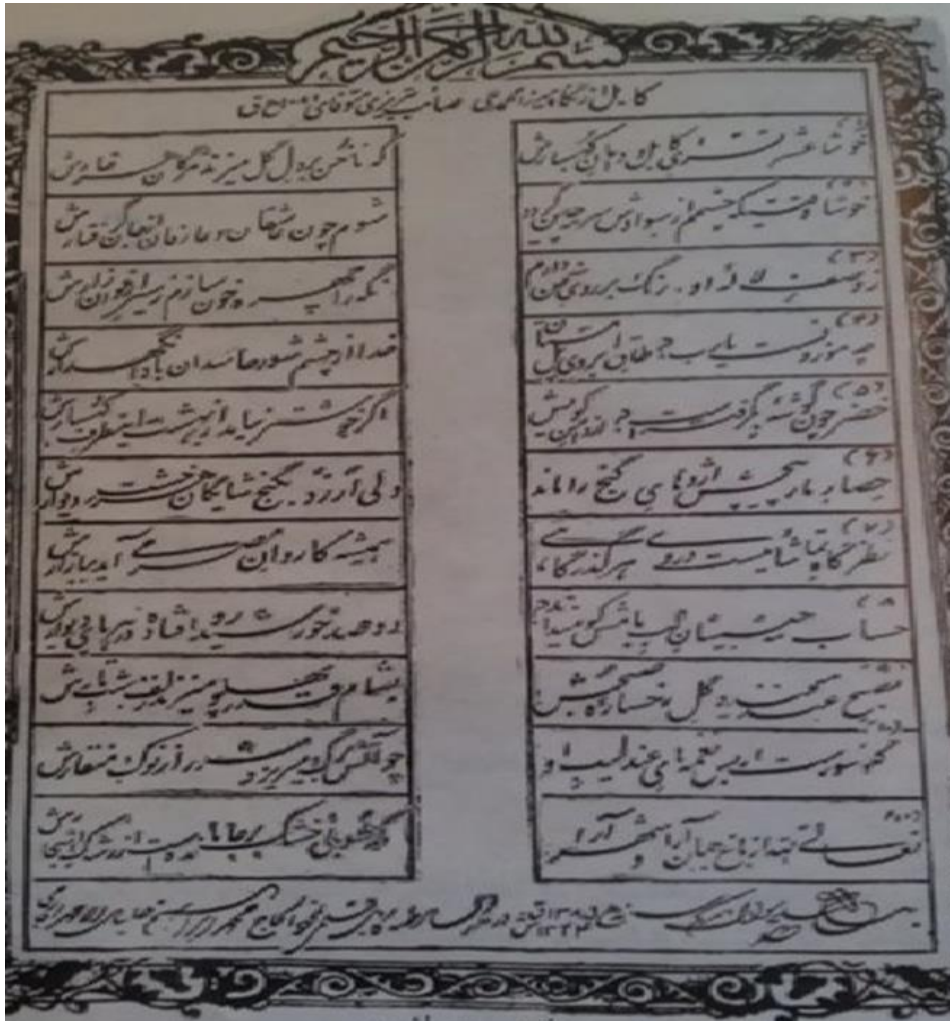 بسم الله الرحمن الرحیم
کابل از نگاه میرزا محمد علی صائب تبریزی متوفای ق
خوشا عشرت سرای کابل و دامان کهسارش
که ناخن بر دل گل میزند مژگان هر خارش
خوشا وقتیکه چشمم از سوادش سرمه چین گردد
شوم چون عاشقان و عارفان از جان گرفتارش
(۳) ز وصف لاله او رنگ بر روی سخن دارم
نگه را چهره خون سازم ز سیر ارغوان زارش
(۴) چه موزونست یارب طاق ابروی پل مستان
خدا از چشم شور حاسدان بادا نگهدارش
(۵) خضر چون گوشه بگرفته است از دامن کوهش
اگر خوشتر نیاید از بهشت اینطرف کهسارش
(۶) حصار مار پیچش اژدهای گنج را ماند
ولی ارزد بگنج شایگان هر خشت دیوارش
(۷) نظرگاه تماشائیست در وی هر گذرگاهی
همیشه کاروان مصر می آید ببازارش
(۸) حساب مه جبینان لب بامش که میداند
دو صد خورشید رو افتاده در هر پای دیوارش
بصبح عید میخندد گل رخساره صبحش
بشام قدر پهلو میزند زلف شب تارش
گلو سوز است از بس نغمه های عندلیب او
چو آتش برگ میریزد شرر از نوک منقارش
تعالی الله از باغ جهان آرا و شهر آرا
که طوبی خشک بر جا مانده است از رشک اشجارش